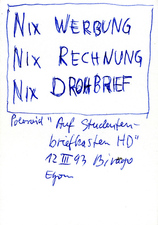 NIX WERBUNG
NIX RECHNUNG
NIX DROHBRIEF
Polaroid "Auf Studenten-
briefkasten HD"
12 III 93 Birago
Egon